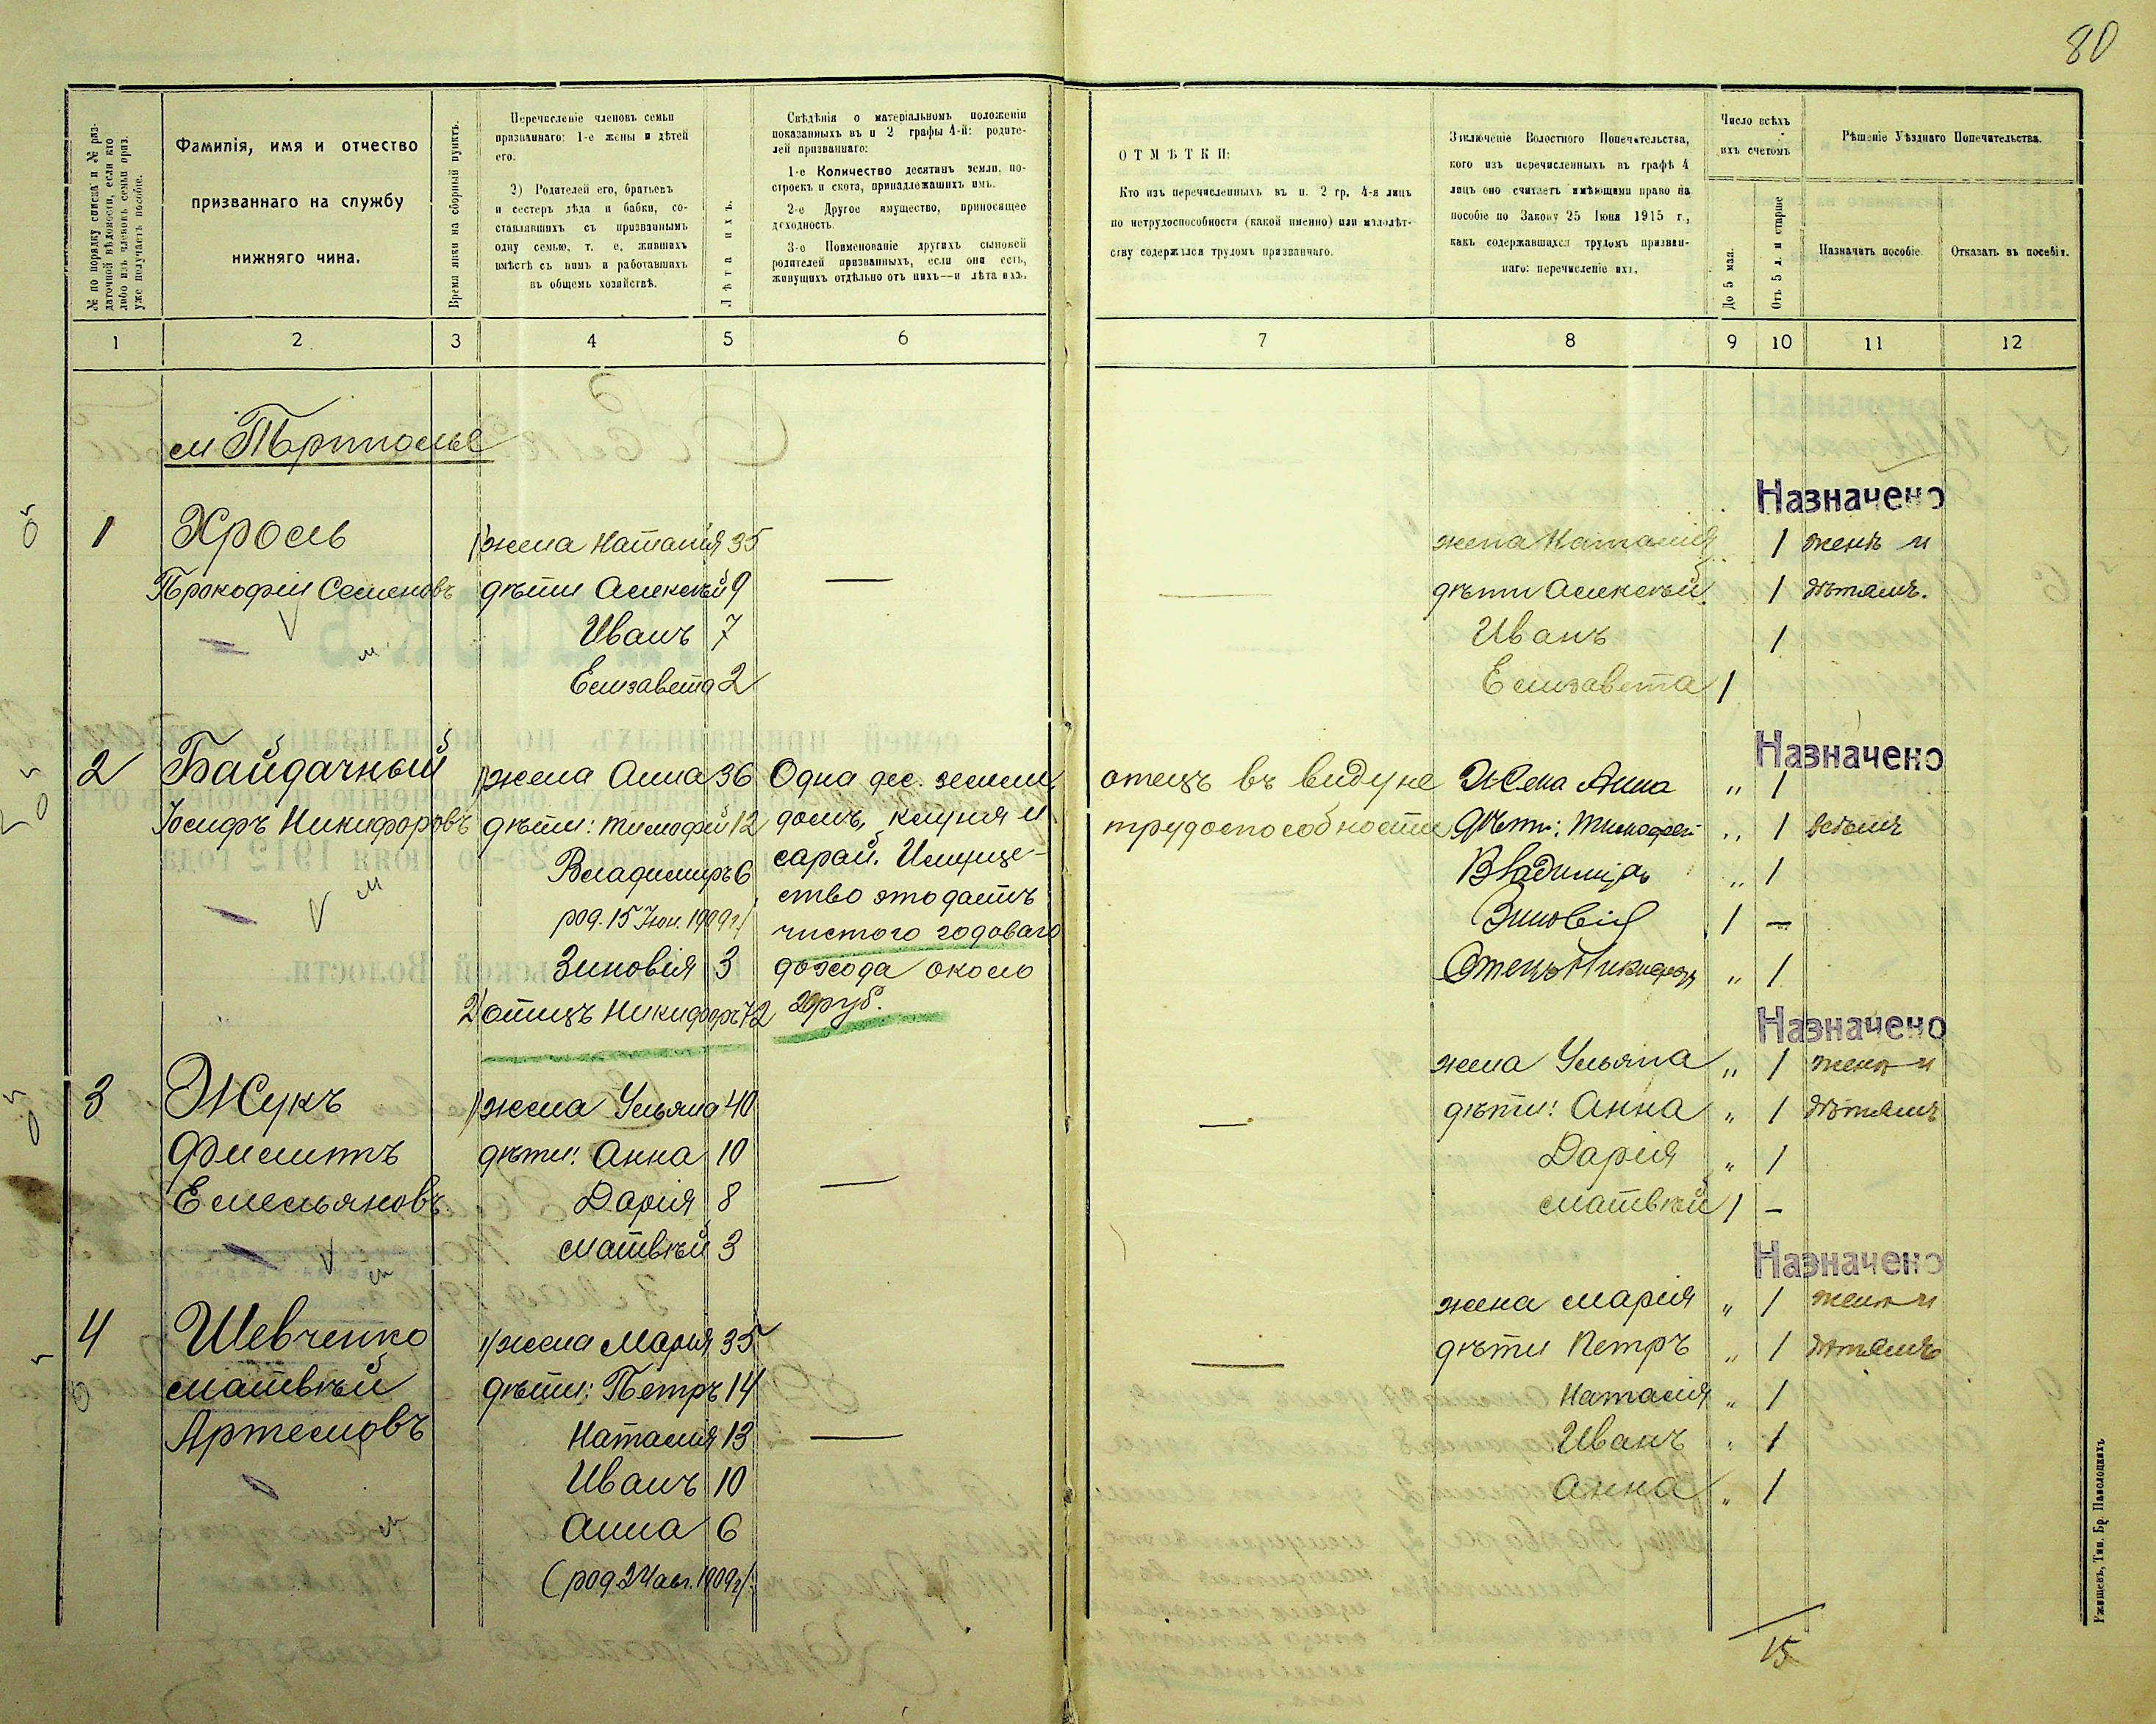 80
№ по порядку списка и № раз-
даточной вѣдомости, если кто
либо изъ членовъ семьи приз.
уже получаетъ пособіе.
Фамилія, имя и отчество
призваннаго на службу
нижняго чина.
Время явки на сборный пунктъ.
Перечисленіе членовъ семьи
призваннаго: 1-е жены и дѣтей
его.
2) Родителей его, братьевъ
и сестеръ дѣда и бабки, со-
ставлявшихъ съ призваннымъ
одну семью, т. е. жившихъ
вмѣстѣ съ нимъ и работавшихъ
въ общемъ хозяйствѣ.
Лѣта ихъ.
Свѣдѣнія о матеріальномъ положеніи
показанныхъ въ п 2 графы 4-й: родите-
лей призваннаго:
1-е Количество десятинъ земли, по-
строекъ и скота, принадлежашихъ имъ.
2-е Другое имущество, приносящее
доходность.
3-е Поименованіе другихъ сыновей
родителей призванныхъ, если они есть,
живущихъ отдѣльно отъ нихъ—и лѣта ихъ.
ОТМѢТКИ:
Кто изъ перечисленныхъ въ п. 2 гр. 4-я лицъ
по нетрудоспособности (какой именно) или малолѣт-
ству содержался трудомъ призваннаго.
Заключеніе Волостного Попечительства,
кого изъ перечисленныхъ въ графѣ 4
лицъ оно считаетъ имѣющими право на
пособіе по Закону 25 Іюня 1915 г.,
какъ содержавшихся трудомъ призван-
наго: перечисленіе ихъ.
Число всѣхъ
ихъ счетомъ
До 5 мал.
Отъ 5 л. и старше
Рѣшеніе Уѣзднаго Попечительства.
Назначить пособіе
Отказать въ пособіи.
1 2 3 4 5 6 7 8 9 10 11 12
м Трипольe
Назначено
1 Хроль 1) жена Наталія 35 — жена Наталія 1 женѣ и
Прокофій Семеновъ дѣти Алексѣй 9 — дѣти Алексѣй 1 дѣтямъ.
Иванъ 7 Иванъ 1
Елизавета 2 Елизавета 1
Назначено
2 Байдачный 1) жена Анна 36 Одна дес. земли, отецъ въ виду не Жена Анна „ 1
Іосифъ Никифоровъ дѣти: Тимофей 12 домъ, клуня и трудоспособности Дѣти: Тимофей „ 1 всѣмъ
Владимиръ 6 сарай. Имуще- Владиміръ „ 1
род. 15 Іюн. 1909 г. ство это даетъ
чистого годоваго Зиновія 1 —
Зиновія 3 дохода около Отецъ Никифоръ „ 1
2) отецъ Никифоръ 72 20 руб.
Назначено
жена Ульяна „ 1 женѣ и
3 Жукъ 1) жена Ульяна 40 — дѣти: Анна „ 1 дѣтямъ
Филиппъ дѣти: Анна 10 Дарія „ 1
Емельяновъ Дарія 8 — Матвѣй 1 —
Матвѣй 3
Назначено
жена Марія „ 1 женѣ и
4 Шевченко 1) жена Марія 35 — дѣти Петръ „ 1 дѣтямъ
Матвѣй дѣти: Петръ 14 Наталія „ 1
Артемовъ Наталія 13 — Иванъ „ 1
Иванъ 10 Анна „ 1
Анна 6
(род. 24 авг. 1909 г.).
15
Ржищевъ, Тип. Бр. Паволоцкихъ